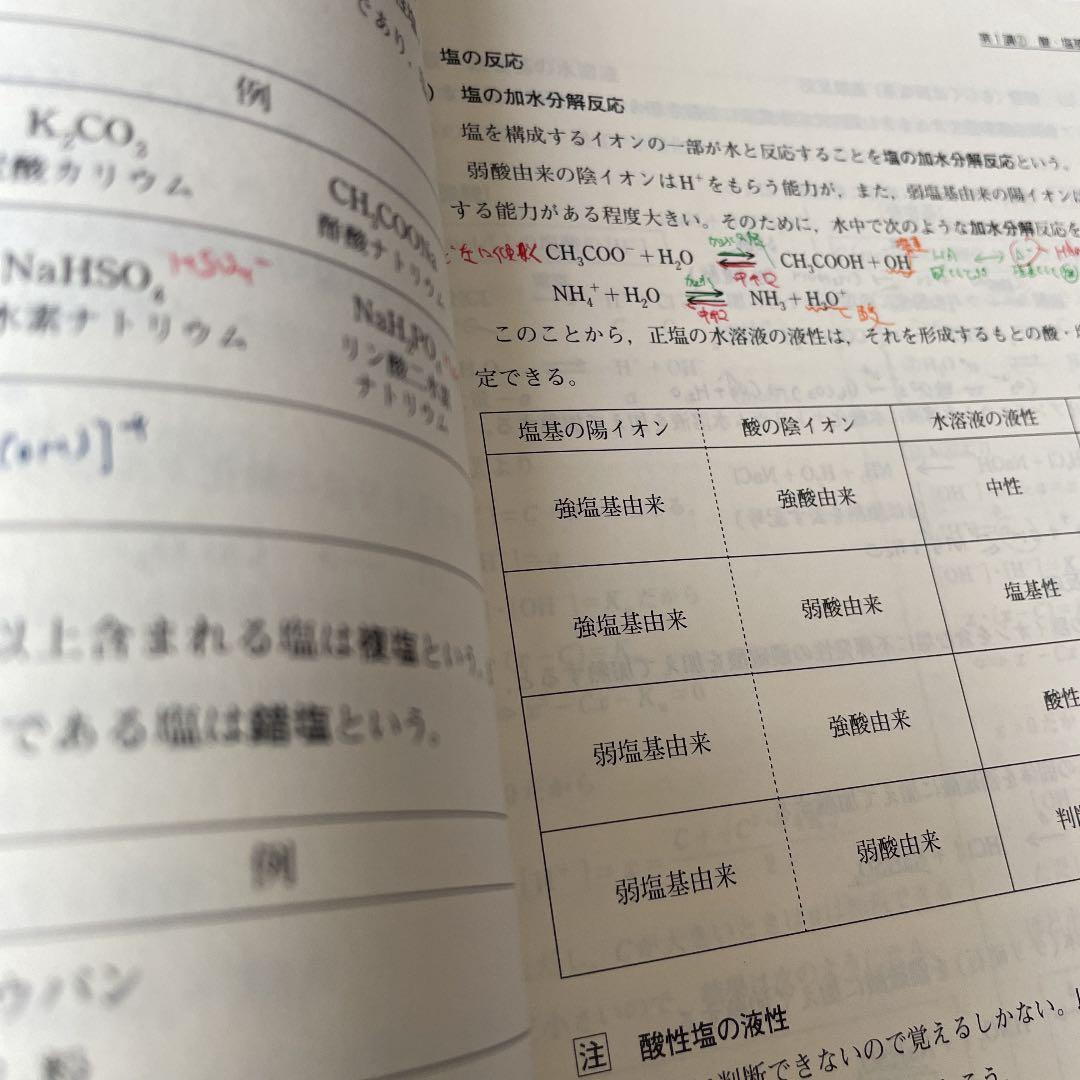 であり,
例
K₂CO₂
酸カリウム
CH₃COONa
酢酸ナトリウム
NaHSO₄ HSO₄⁻
水素ナトリウム
NaH₂PO₄
リン酸二水素
ナトリウム
以上含まれる塩は複塩という。
である塩は錯塩という。
例
ウバン
第1講② 酸・塩
塩の反応
) 塩の加水分解反応
塩を構成するイオンの一部が水と反応することを塩の加水分解反応という。
弱酸由来の陰イオンはH⁺をもらう能力が,また,弱塩基由来の陽イオンは
する能力がある程度大きい。そのために,水中で次のような加水分解反応を
CH₃COO⁻ + H₂O ⇄ CH₃COOH + OH⁻
中和
NH₄⁺ + H₂O ⇄ NH₃ + H₃O⁺ 酸
中和
このことから,正塩の水溶液の液性は,それを形成するもとの酸・塩
定できる。
塩基の陽イオン 酸の陰イオン 水溶液の液性
強塩基由来 強酸由来 中性
強塩基由来 弱酸由来 塩基性
弱塩基由来 強酸由来 酸性
弱塩基由来 弱酸由来 判
注 酸性塩の液性
判断できないので覚えるしかない。